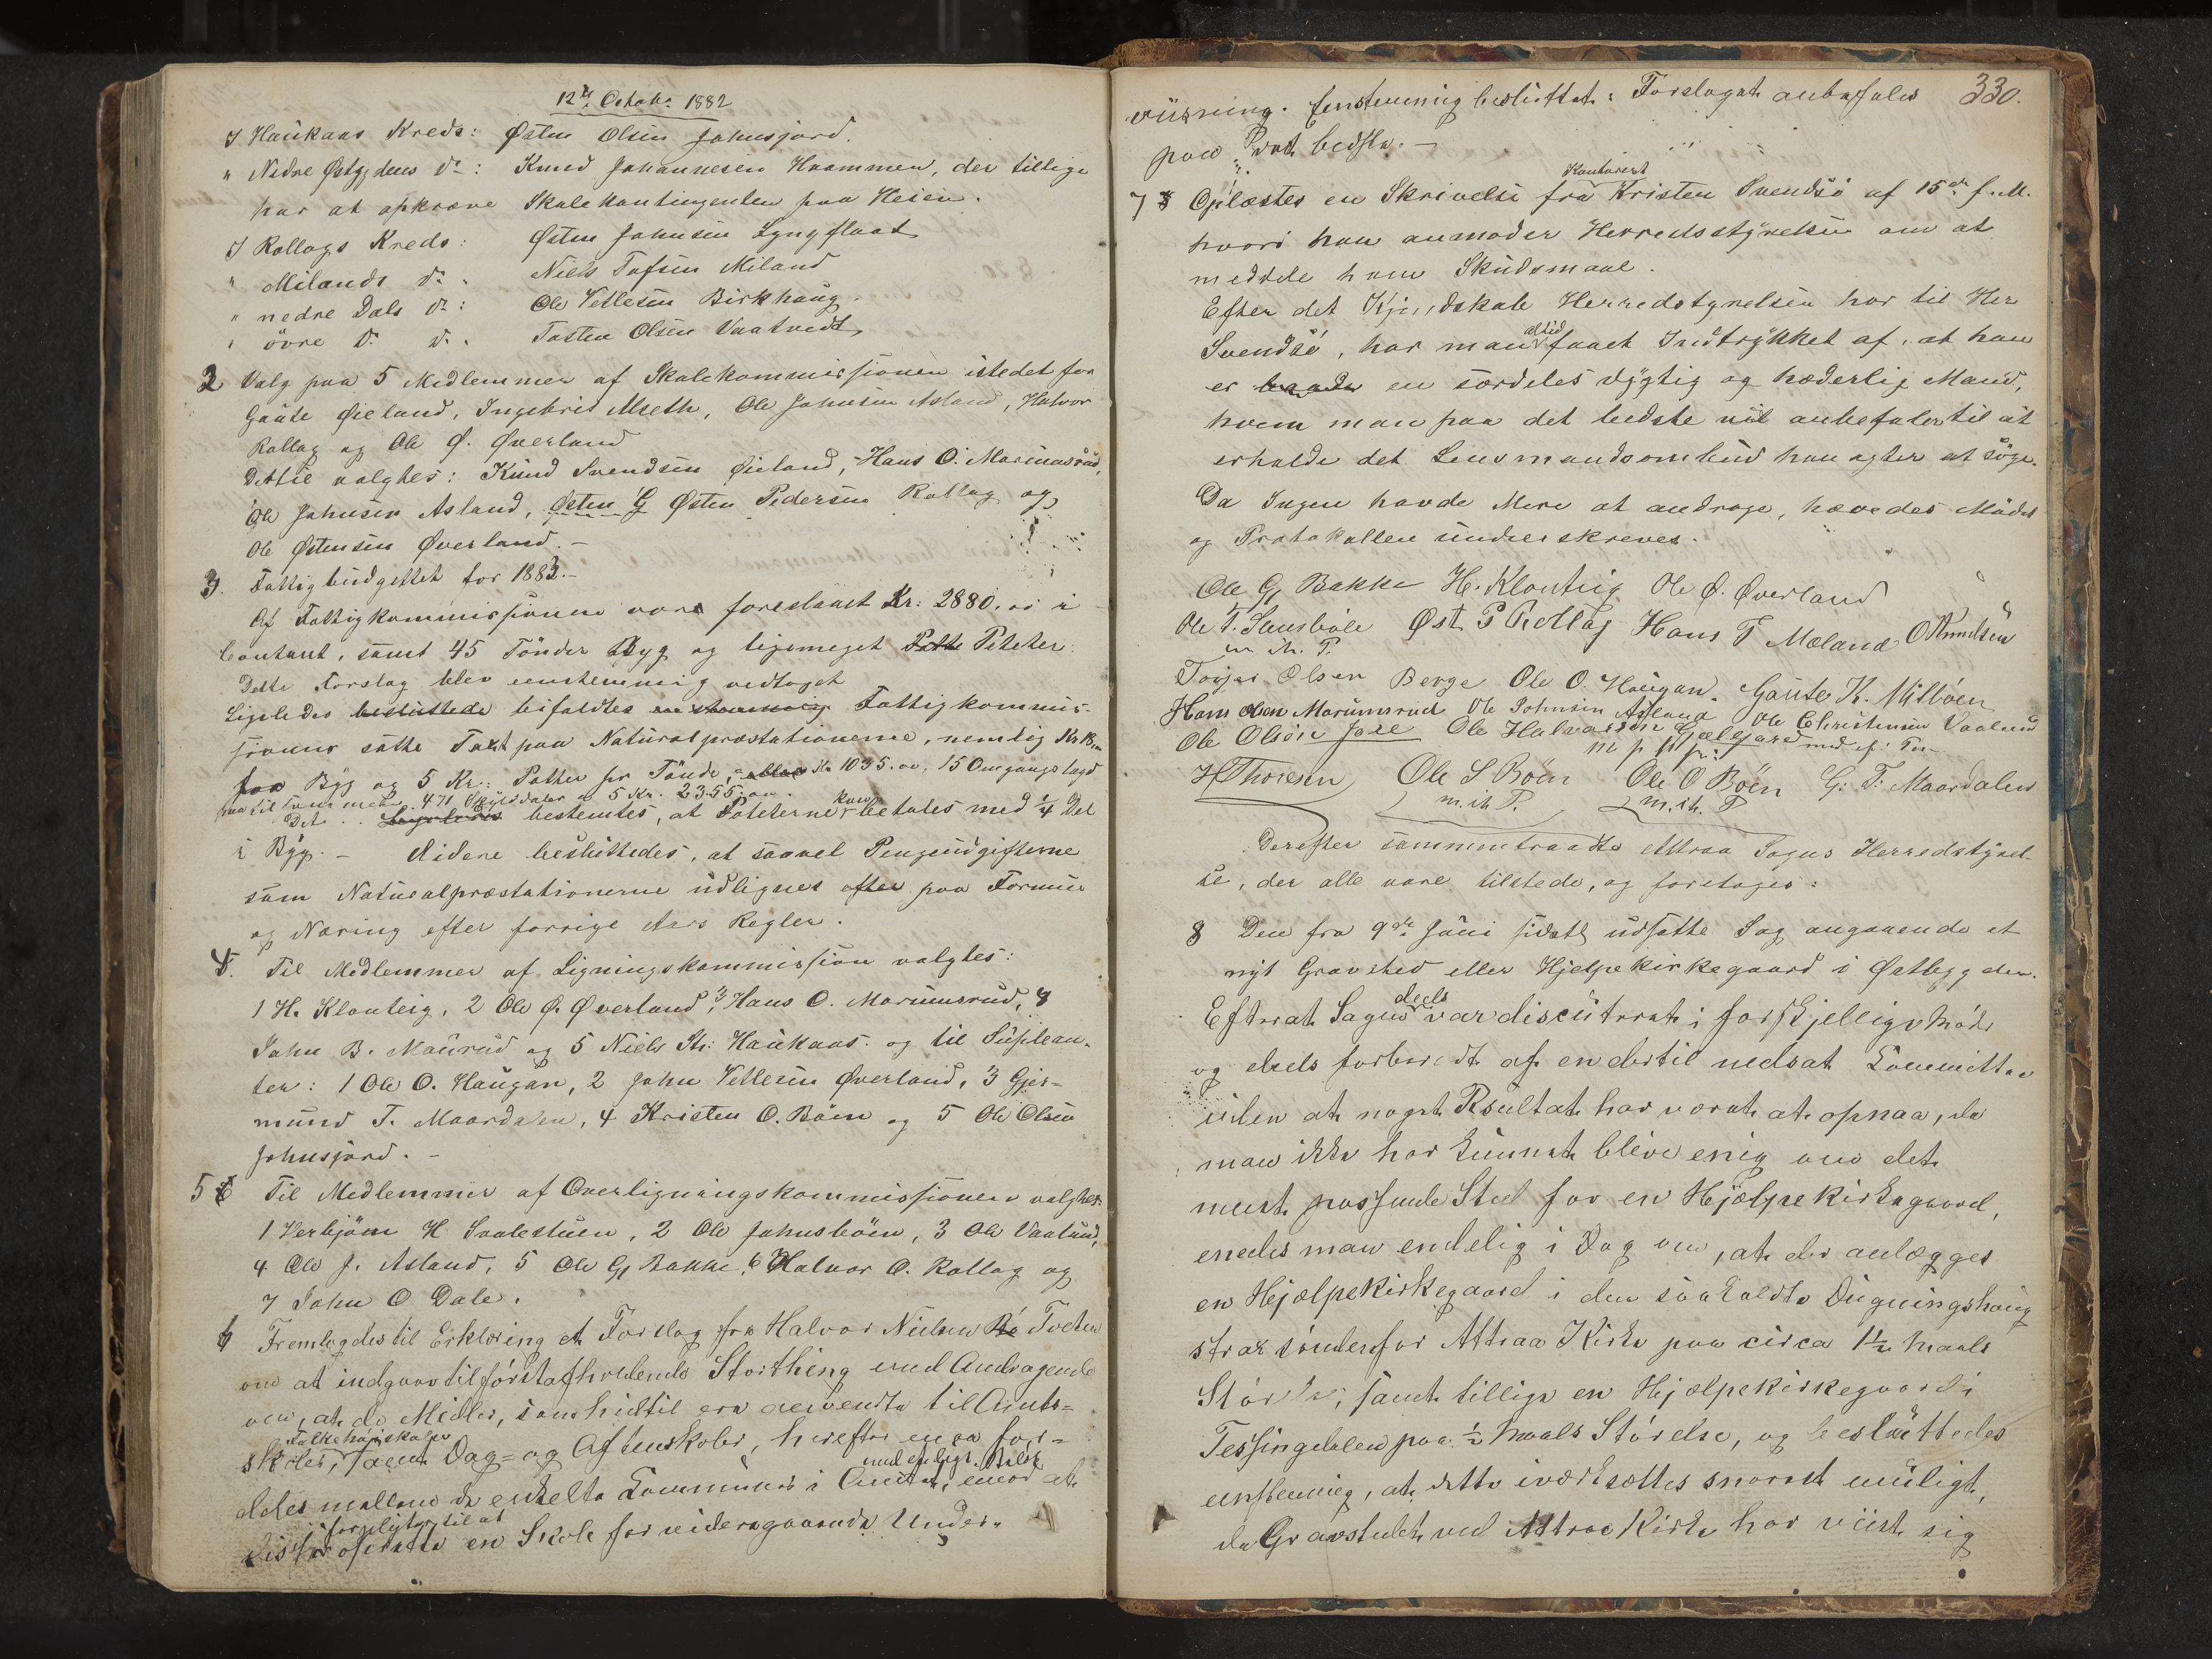 12te October 1882
I Haukaas Kreds: Østen Olsen Johnsjord.
" Nedre Østbygdens do: Knud Johannesen Haammen, der tillige
har at opkræve Skolekontingenten paa Heien.
I Rollags Kreds: Østen Johnsen Lyngflaat
" Milands do. Niels Tofsen Miland
" nedre Dals do: Ole Vetlesen Birkhaug.
" övre D. do. Tosten Olsen Vaatvedt
2 Valg paa 5 Medlemmer af Skolekommissionen istedetfor
Gaute Øieland, Ingebrit Alseth, Ole Johnsen Asland, Halvor
Rollag og Ole Ø. Øverland
Dertil valgtes: Knud Svendsen Øieland, Hans O. Marumsrud,
Ole Johnsen Asland, Østen G Østen Pedersen Rollag og
Ole Østensen Øverland. -
3. Fattigbudgettet for 1883. -
Af Fattigkommissionen vare foreslaaet Kr: 2880,00 i
Contant, samt 45 Tönder Byg og ligemeget Potte Peteter.
Dette Forslag blev eenstemmig vedtaget
Ligeledes besluttede bifaldtes enstemmig Fattigkommis-
sionens satte Taxt paa Naturalpræstationerne, nemlig Kr 18,00
for Byg og 5 Kr: Potter pr Tönde, Kr 1035.00, 15 Omgangslagd
471 Skylddaler a 5 Kr. 2355.00.
Det Ligeledes bestemtes, at Poteterne kan betales med 1/4 Del
i Byg. - Videre besluttedes, at saavel Pengeudgifterne
som Naturalpræstationerne udlignes efter paa Formue
og Næring efter forrige Aars Regler.
4. Til Medlemmer af Ligningskommission valgtes:
1 H. Klonteig, 2 Ole Ø. Øverland, 3 Hans O. Marumsrud, 4
John B. Maurud og 5 Niels Kr: Haukaas. og til Suplean-
ter: 1 Ole O. Haugan, 2 John Vetlesen Øverland, 3 Gjer-
mund T. Maardalen, 4 Kristen O. Böen og 5 Ole Olsen
Johnsjord. -
5 6 Til Medlemmer af Overligningskommissionen valgtes:
1 Verbjörn H Saabestuen, 2 Ole Johnsböen, 3 Ole Vaalund,
4 Ole J. Asland, 5 Ole G Bakke, 6 Halvor O. Rollag og
7 John O Dale.
6 Fremlagdes til Erklæring et Forslag fra Halvor Nielsen Ro Tveten
om at indgaa til förstafholdende Storthing med Andragende
om, at de Midler, som hidtil ere anvendte til Amts-
Folkehöiskoler
skoler, samt Dag- og Aftenskoler, herefter maa for-
deles mellem de enkelte Communer i Amtet, mod at
forpligter til at
disse oprette en Skole for videregaaende Under-
330.
viisning. Eenstemmig besluttet: Forslaget anbefales
paa det bedste. -
Kontorist
7 8 Oplæstes en Skrivelse fra Kristen Svendsö af 15de f.M.
hvori han anmoder Herredsstyrelsen om at
meddele ham Skudsmaal.
Efter det Kjendskab Herredstyrelsen har til Her
altid
Svendsö, har man faaet Indtrykket af, at han
er baade en særdeles dygtig og hæderlig Mand,
hvem man paa det bedste vil anbefaler til at
erholde det Lensmandsombud han agter at söge.
Da Ingen havde Mere at andrage, hævedes Mödet
og Protokollen underskreves.
Ole G Bakke H. Klonteig Ole Ø. Øverland
Ole T. Sausböle Øst. P Rollag Hans T Mæland O Knudsen
m. P.
Torjus Olsen Berge Ole O. Haugan. Gaute K. Milböen
Hans Olsen Marumsrud Ole Johnsen Asland Ole Christensen Vaalund
Ole Olsön Jore Ole Halvorsön med p: Pen
m p p p:
H Thoresen Ole S Böen Ole O Böen G: T: Maardalen
m. ih. P. m. ih. P
Derefter sammentraadte Attraa Sogns Herredstyrel-
se, der alle vare tilstede, og foretoges:
8 Den fra 9de Juni sidstl udsatte Sag angaaende et
nyt Gravsted eller Hjelpekirkegaard i Østbygden.
deels
Efterat Sagen var discuteret i forskjellige Möder
og deels forberedt af en dertil nedsat Committee
uden at noget Resultat har været at opnaa, da
man ikke har kunnet blive enig om det
mest passende Sted for en Hjælpekirkegaard,
enedes man endelig i Dag om, at der anlægges
en Hjælpekirkegaard i den saakaldte Dugningshaug
strax söndenfor Attraa Kirke paa circa 1 1/2 Maals
Större, samt tillige en Hjælpekirkegaard i
Tessingdalen paa 1/2 Maals Störelse, og besluttedes
enstemmig, at dette iværksættes snarest muligt,
da Gravstedet ved Attraa Kirke har viist sig